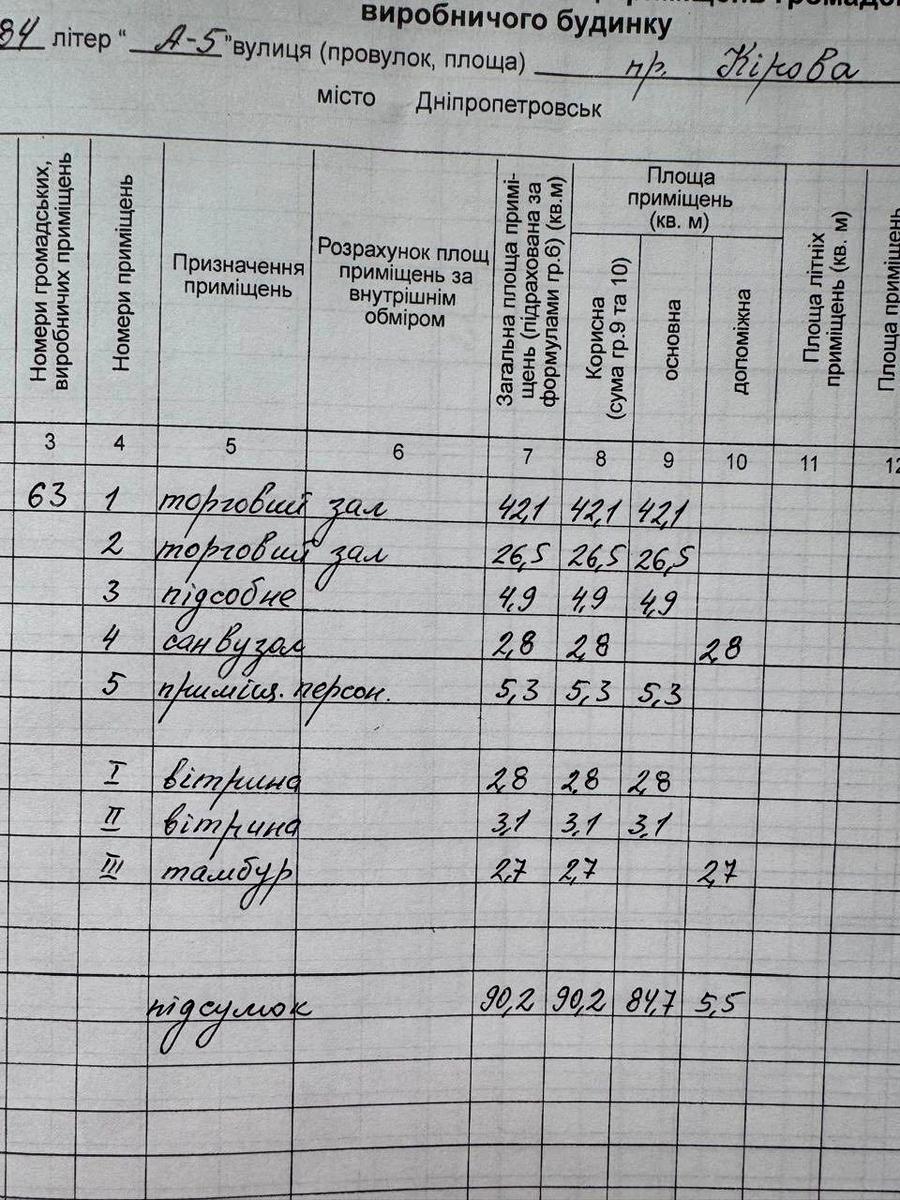 виробничого будинку
84 літер “ А-5 ”вулиця (провулок, площа) пр. Кірова
місто Дніпропетровськ
Номери громадських, виробничих приміщень
Номери приміщень
Призначення приміщень
Розрахунок площ приміщень за внутрішнім обміром
Загальна площа приміщень (підрахована за формулами гр.6) (кв.м)
Площа приміщень (кв. м)
Корисна (сума гр.9 та 10)
основна
допоміжна
Площа літніх приміщень (кв. м)
Площа приміщень
3 4 5 6 7 8 9 10 11 12
63 1 торговий зал 42,1 42,1 42,1
2 торговий зал 26,5 26,5 26,5
3 підсобне 4,9 4,9 4,9
4 санвузол 2,8 2,8 2,8
5 приміщ. персон. 5,3 5,3 5,3
I вітрина 2,8 2,8 2,8
II вітрина 3,1 3,1 3,1
III тамбур 2,7 2,7 2,7
підсумок 90,2 90,2 84,7 5,5